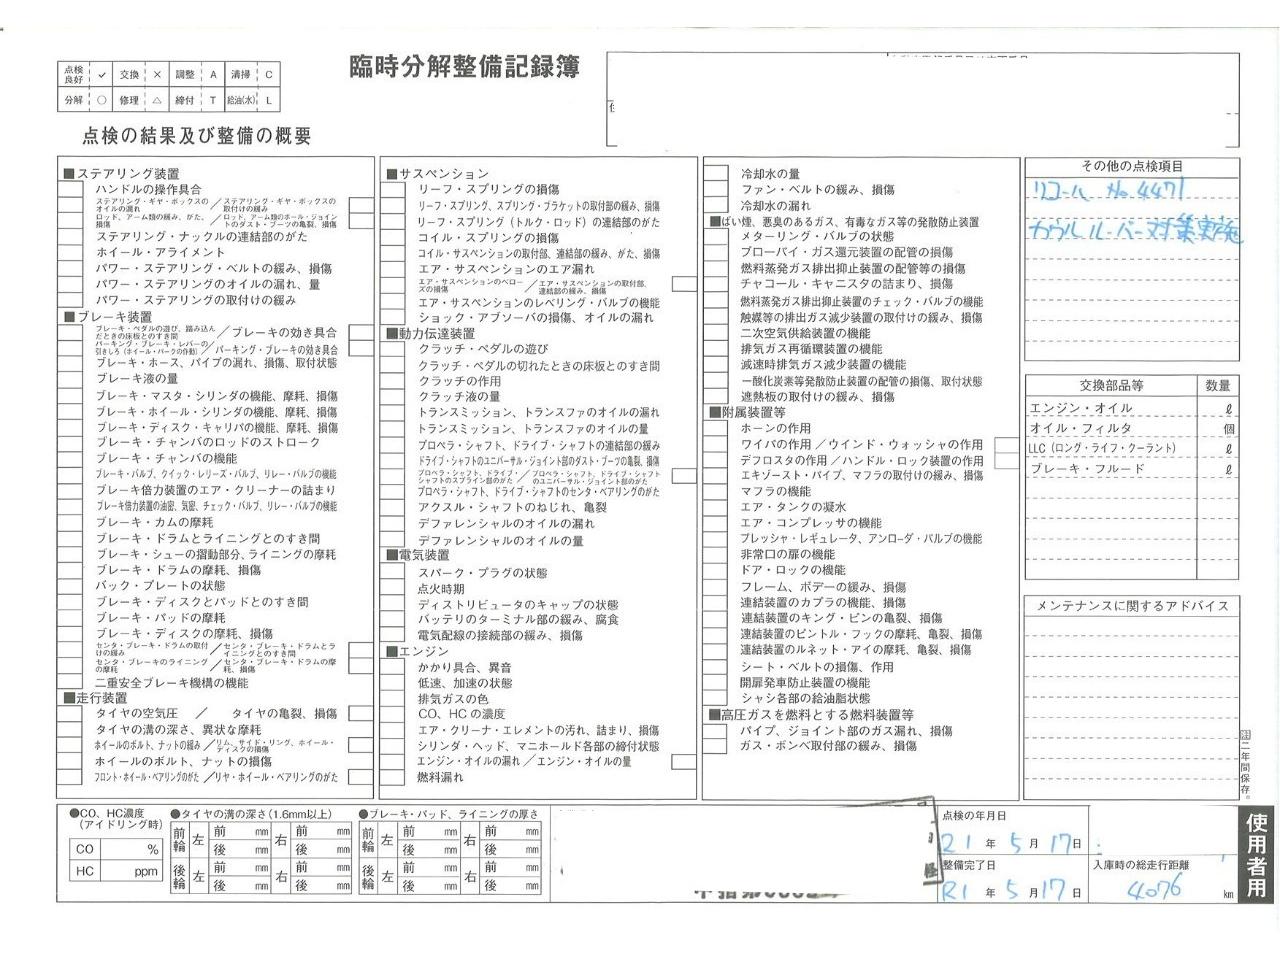 点検良好 ✓ 交換 × 調整 A 清掃 C
分解 ○ 修理 △ 締付 T 給油(水) L
臨時分解整備記録簿
点検の結果及び整備の概要
■ステアリング装置
ハンドルの操作具合
ステアリング・ギヤ・ボックスのオイルの漏れ／ステアリング・ギヤ・ボックスの取付けの緩み
ロッド、アーム類の緩み、がた、損傷／ロッド、アーム類のボール・ジョイントのダスト・ブーツの亀裂、損傷
ステアリング・ナックルの連結部のがた
ホイール・アライメント
パワー・ステアリング・ベルトの緩み、損傷
パワー・ステアリングのオイルの漏れ、量
パワー・ステアリングの取付けの緩み
■ブレーキ装置
ブレーキ・ペダルの遊び、踏み込んだときの床板とのすき間／ブレーキの効き具合
パーキング・ブレーキ・レバーの引きしろ（ホイール・パークの作動）／パーキング・ブレーキの効き具合
ブレーキ・ホース、パイプの漏れ、損傷、取付状態
ブレーキ液の量
ブレーキ・マスタ・シリンダの機能、摩耗、損傷
ブレーキ・ホイール・シリンダの機能、摩耗、損傷
ブレーキ・ディスク・キャリパの機能、摩耗、損傷
ブレーキ・チャンバのロッドのストローク
ブレーキ・チャンバの機能
ブレーキ・バルブ、クイック・レリーズ・バルブ、リレー・バルブの機能
ブレーキ倍力装置のエア・クリーナーの詰まり
ブレーキ倍力装置の油密、気密、チェック・バルブ、リレー・バルブの機能
ブレーキ・カムの摩耗
ブレーキ・ドラムとライニングとのすき間
ブレーキ・シューの摺動部分、ライニングの摩耗
ブレーキ・ドラムの摩耗、損傷
バック・プレートの状態
ブレーキ・ディスクとパッドとのすき間
ブレーキ・パッドの摩耗
ブレーキ・ディスクの摩耗、損傷
センタ・ブレーキ・ドラムの取付けの緩み／センタ・ブレーキ・ドラムとライニングとのすき間
センタ・ブレーキのライニングの摩耗／センタ・ブレーキ・ドラムの摩耗、損傷
二重安全ブレーキ機構の機能
■走行装置
タイヤの空気圧 ／ タイヤの亀裂、損傷
タイヤの溝の深さ、異状な摩耗
ホイールのボルト、ナットの緩み／リム、サイド・リング、ホイール・ディスクの損傷
ホイールのボルト、ナットの損傷
フロント・ホイール・ベアリングのがた／リヤ・ホイール・ベアリングのがた
■サスペンション
リーフ・スプリングの損傷
リーフ・スプリング、スプリング・ブラケットの取付部の緩み、損傷
リーフ・スプリング（トルク・ロッド）の連結部のがた
コイル・スプリングの損傷
コイル・サスペンションの取付部、連結部の緩み、がた、損傷
エア・サスペンションのエア漏れ
エア・サスペンションのベローズの損傷／エア・サスペンションの取付部、連結部の緩み、損傷
エア・サスペンションのレベリング・バルブの機能
ショック・アブソーバの損傷、オイルの漏れ
■動力伝達装置
クラッチ・ペダルの遊び
クラッチ・ペダルの切れたときの床板とのすき間
クラッチの作用
クラッチ液の量
トランスミッション、トランスファのオイルの漏れ
トランスミッション、トランスファのオイルの量
プロペラ・シャフト、ドライブ・シャフトの連結部の緩み
ドライブ・シャフトのユニバーサル・ジョイント部のダスト・ブーツの亀裂、損傷
プロペラ・シャフト、ドライブ・シャフトのスプライン部のがた／プロペラ・シャフト、ドライブ・シャフトのユニバーサル・ジョイント部のがた
プロペラ・シャフト、ドライブ・シャフトのセンタ・ベアリングのがた
アクスル・シャフトのねじれ、亀裂
デファレンシャルのオイルの漏れ
デファレンシャルのオイルの量
■電気装置
スパーク・プラグの状態
点火時期
ディストリビュータのキャップの状態
バッテリのターミナル部の緩み、腐食
電気配線の接続部の緩み、損傷
■エンジン
かかり具合、異音
低速、加速の状態
排気ガスの色
CO、HCの濃度
エア・クリーナ・エレメントの汚れ、詰まり、損傷
シリンダ・ヘッド、マニホールド各部の締付状態
エンジン・オイルの漏れ／エンジン・オイルの量
燃料漏れ
冷却水の量
ファン・ベルトの緩み、損傷
冷却水の漏れ
■ばい煙、悪臭のあるガス、有毒なガス等の発散防止装置
メターリング・バルブの状態
ブローバイ・ガス還元装置の配管の損傷
燃料蒸発ガス排出抑止装置の配管等の損傷
チャコール・キャニスタの詰まり、損傷
燃料蒸発ガス排出抑止装置のチェック・バルブの機能
触媒等の排出ガス減少装置の取付けの緩み、損傷
二次空気供給装置の機能
排気ガス再循環装置の機能
減速時排気ガス減少装置の機能
一酸化炭素等発散防止装置の配管の損傷、取付状態
遮熱板の取付けの緩み、損傷
■附属装置等
ホーンの作用
ワイパの作用／ウインド・ウォッシャの作用
デフロスタの作用／ハンドル・ロック装置の作用
エキゾースト・パイプ、マフラの取付けの緩み、損傷
マフラの機能
エア・タンクの凝水
エア・コンプレッサの機能
プレッシャ・レギュレータ、アンローダ・バルブの機能
非常口の扉の機能
ドア・ロックの機能
フレーム、ボデーの緩み、損傷
連結装置のカプラの機能、損傷
連結装置のキング・ピンの亀裂、損傷
連結装置のピントル・フックの摩耗、亀裂、損傷
連結装置のルネット・アイの摩耗、亀裂、損傷
シート・ベルトの損傷、作用
開扉発車防止装置の機能
シャシ各部の給油脂状態
■高圧ガスを燃料とする燃料装置等
パイプ、ジョイント部のガス漏れ、損傷
ガス・ボンベ取付部の緩み、損傷
その他の点検項目
リコール No.4471
カウルルーバー対策実施
交換部品等 数量
エンジン・オイル ℓ
オイル・フィルタ 個
LLC（ロング・ライフ・クーラント） ℓ
ブレーキ・フルード ℓ
メンテナンスに関するアドバイス
注二年間保存。
●CO、HC濃度（アイドリング時）
CO %
HC ppm
●タイヤの溝の深さ（1.6mm以上）
前輪 左 前 mm 右 前 mm
後 mm 後 mm
後輪 左 前 mm 右 前 mm
後 mm 後 mm
●ブレーキ・パッド、ライニングの厚さ
前輪 左 前 mm 右 前 mm
後 mm 後 mm
後輪 左 前 mm 右 前 mm
後 mm 後 mm
点検の年月日
21 年 5 月 17 日
整備完了日
R1 年 5 月 17 日
入庫時の総走行距離
4076 km
使用者用